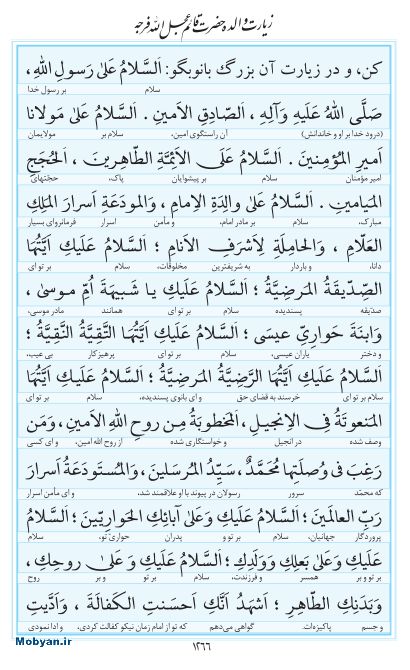 زیارت والده حضرت قائم عجل الله فرجه
کن، و در زیارت آن بزرگ بانوبگو: اَلسَّلامُ عَلىٰ رَسولِ اللهِ،
سلام بر رسول خدا
صَلَّى اللهُ عَلَيهِ وَآلِهِ، اَلصّادِقِ الاَمينِ. اَلسَّلامُ عَلىٰ مَولانا
(درود خدا بر او و خاندانش) آن راستگوی امین، سلام بر مولایمان
اَميرِ المُؤمِنينَ. اَلسَّلامُ عَلَى الاَئِمَّةِ الطّاهِرينَ، اَلحُجَجِ
امیر مؤمنان سلام بر پیشوایان پاک، حجتهای
المَيامينِ. اَلسَّلامُ عَلىٰ والِدَةِ الاِمامِ، وَالمودَعَةِ اَسرارَ المَلِكِ
مبارک، سلام بر مادر امام، و مأمن اسرار فرمانروای بسیار
العَلّامِ، وَالحامِلَةِ لِاَشرَفِ الاَنامِ؛ اَلسَّلامُ عَلَيكِ اَيَّتُهَا
دانا، و باردار به شریفترین مخلوقات، سلام بر تو ای
الصِّدّيقَةُ المَرضِيَّةُ؛ اَلسَّلامُ عَلَيكِ يا شَبيهَةَ اُمِّ موسىٰ،
صدیقه پسندیده سلام بر تو ای همانند مادر موسی،
وَابنَةَ حَوارِيِّ عيسىٰ؛ اَلسَّلامُ عَلَيكِ اَيَّتُهَا التَّقِيَّةُ النَّقِيَّةُ؛
و دختر یاران عیسی، سلام بر تو ای پرهیزکار بی عیب،
اَلسَّلامُ عَلَيكِ اَيَّتُهَا الرَّضِيَّةُ المَرضِيَّةُ؛ اَلسَّلامُ عَلَيكِ اَيَّتُهَا
سلام بر تو ای خرسند به قضای حق و ای بانوی پسندیده، سلام بر تو ای
المَنعوتَةُ فِى الاِنجيلِ، اَلمَخطوبَةُ مِن روحِ اللهِ الاَمينِ، وَمَن
وصف شده در انجیل و خواستگاری شده از روح الله امین، و ای کسی
رَغِبَ فى وُصلَتِها مُحَمَّدٌ، سَيِّدُ المُرسَلينَ، وَالمُستَودَعَةُ اَسرارَ
که محمّد سرور رسولان در پیوند با او علاقمند شد، و ای مأمن اسرار
رَبِّ العالَمينَ؛ اَلسَّلامُ عَلَيكِ وَعَلىٰ آبائِكِ الحَوارِيّينَ؛ اَلسَّلامُ
پروردگار جهانیان، سلام بر تو و پدران حواری تو، سلام
عَلَيكِ وَعَلىٰ بَعلِكِ وَوَلَدِكِ؛ اَلسَّلامُ عَلَيكِ وَ عَلىٰ روحِكِ،
بر تو و بر همسر و فرزندت، سلام بر تو و بر روح
وَبَدَنِكِ الطّاهِرِ؛ اَشهَدُ اَنَّكِ اَحسَنتِ الكَفالَةَ، وَاَدَّيتِ
و جسم پاکیزه‌ات. گواهی می‌دهم که تو از امام زمان نیکو کفالت کردی، و ادا نمودی
Mobyan.ir
۱۲۶۶